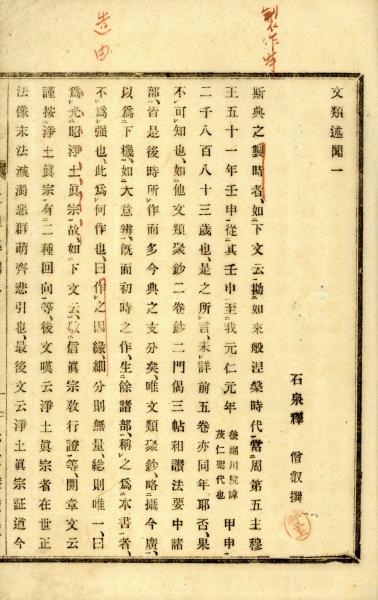 文類述聞一
石泉釋　僧叡撰
斯典之製時者、如下文云、拗如來般涅槃時代、當周第五主穆
王五十一年壬申、從其壬申至我元仁元年 後堀川院諱茂仁聖代也 甲申
二千八百八十三歲也、是之所言、未詳前五卷亦同年耶否、果
不可知也、如他文類聚鈔二卷鈔二門偈三帖和讃法要中諸
部、皆是後時所作而多今典之支分矣、唯文類聚鈔、略攝今廣、
以爲下機、如大意辨、旣而初時之作、生餘諸部、稱之爲本書者、
不爲强也、此爲何作也、曰作之因緣、細分則無量、總則唯一、曰
爲光昭淨土眞宗故、如下文云、敬信眞宗敎行證等、開章文云
謹按淨土眞宗有二種回向等、後文嘆云淨土眞宗者在世正
法像末法滅濁惡群萌齊悲引也、最後文云淨土眞宗証道今
製作時
造由